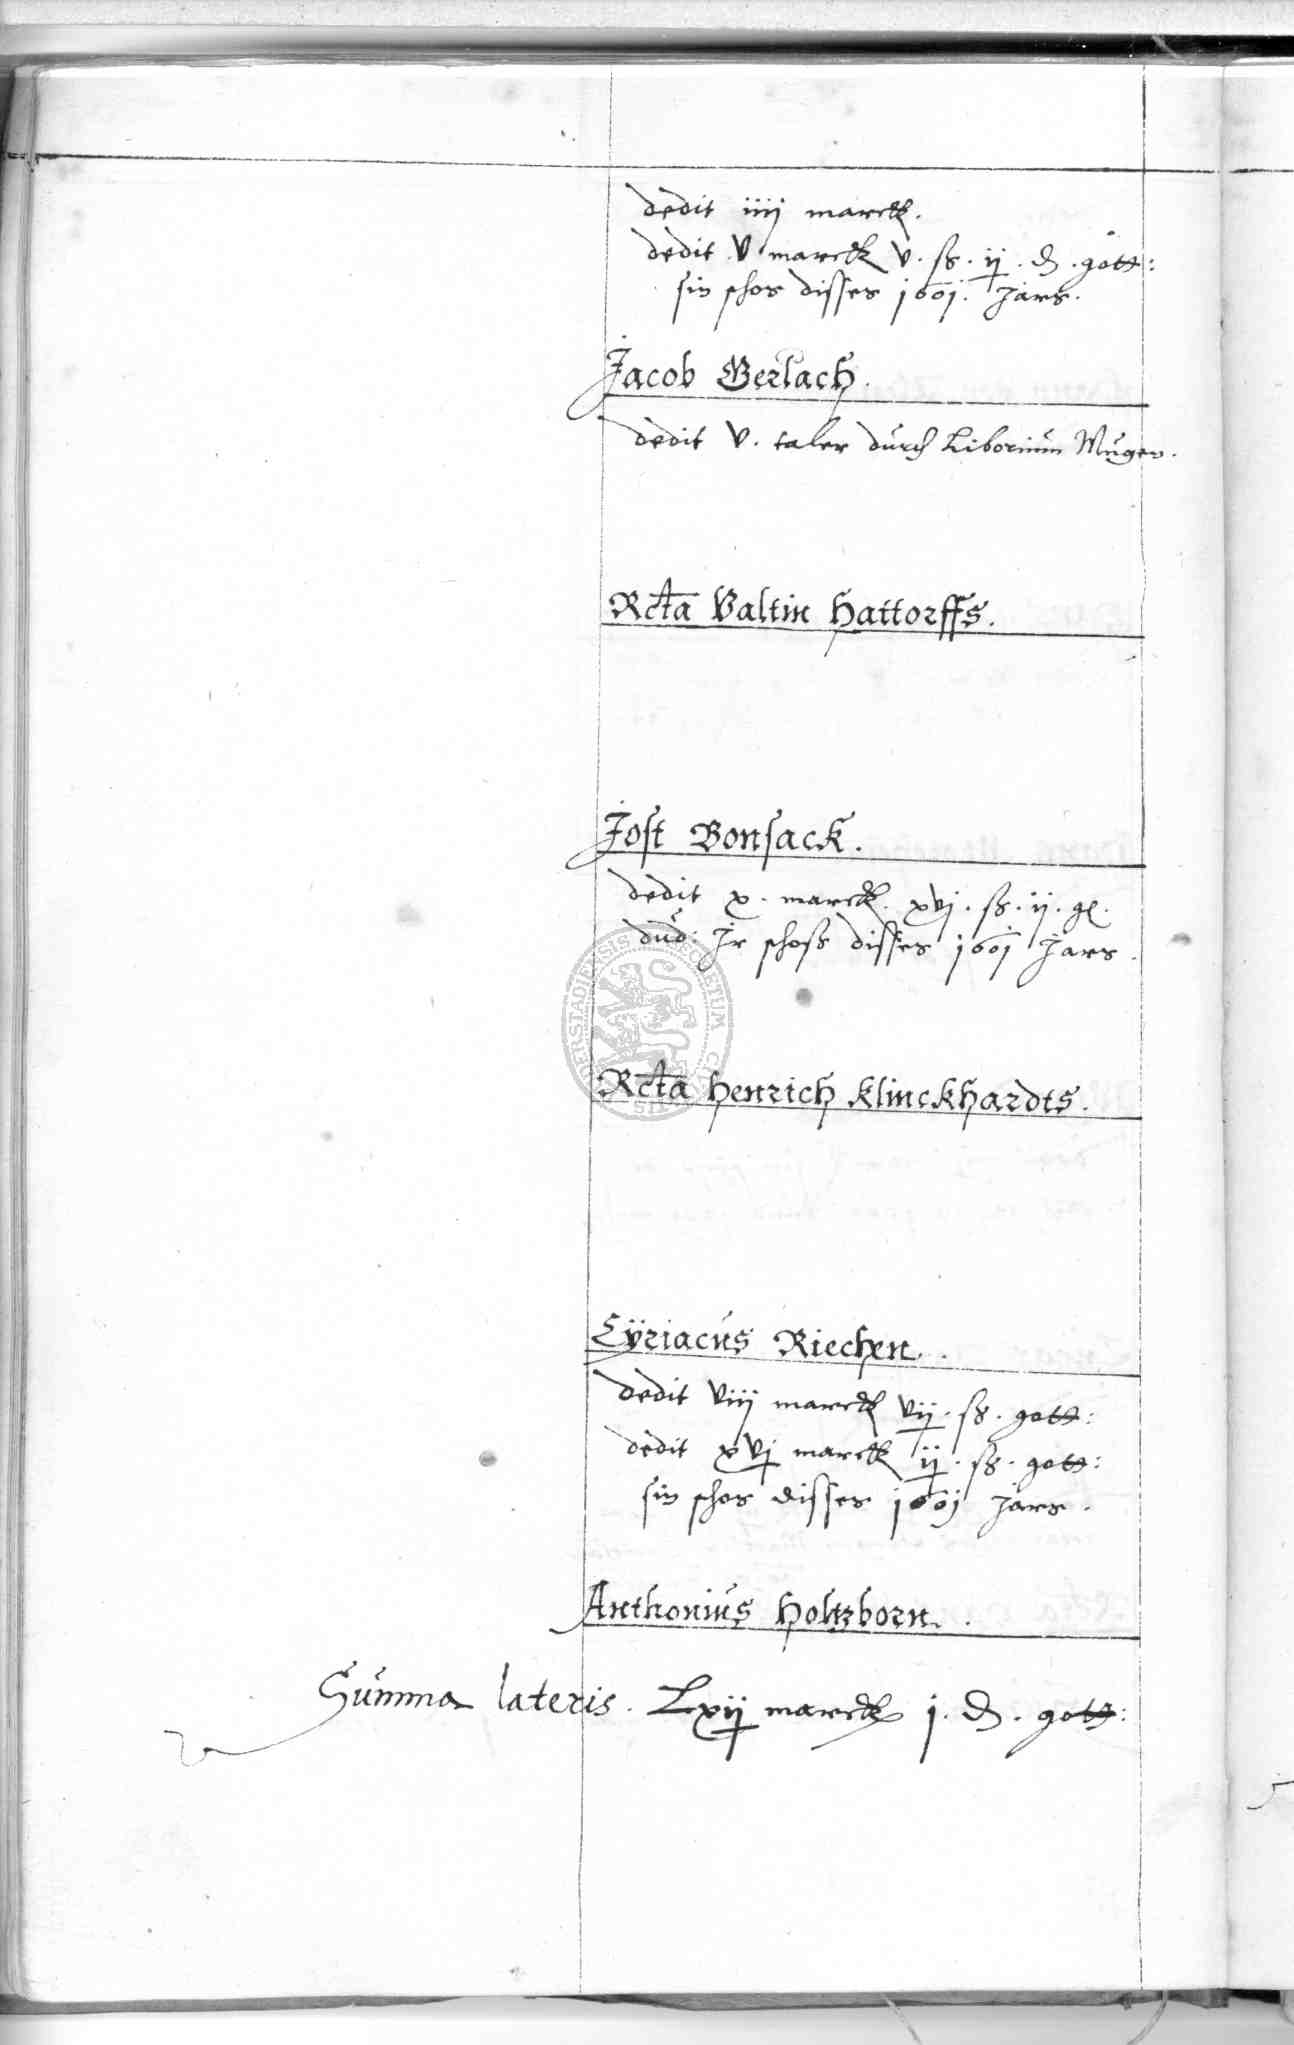 dedit iiij marck.
dedit v marck v. ß. ij. ₰. gott:
sin schos disses 1601. Jars.
Jacob Gerlach.
dedit v. taler durch Liborium Mugen.
Rcta Valtin Hattorffs.
Jost Bonsack.
dedit x. marck. xvj. ß. ij. gl.
dud: Jr schoss disses 1601 Jars.
Rcta Henrich Klinckhardts.
Cÿriacus Riechen.
dedit viij marck vij. ß. gott:
dedit xvj marck ij. ß. gott:
sin schos disses 1601 Jars.
Anthonius Holtzborn.
Summa lateris. Lxij marck j. ₰. gott: